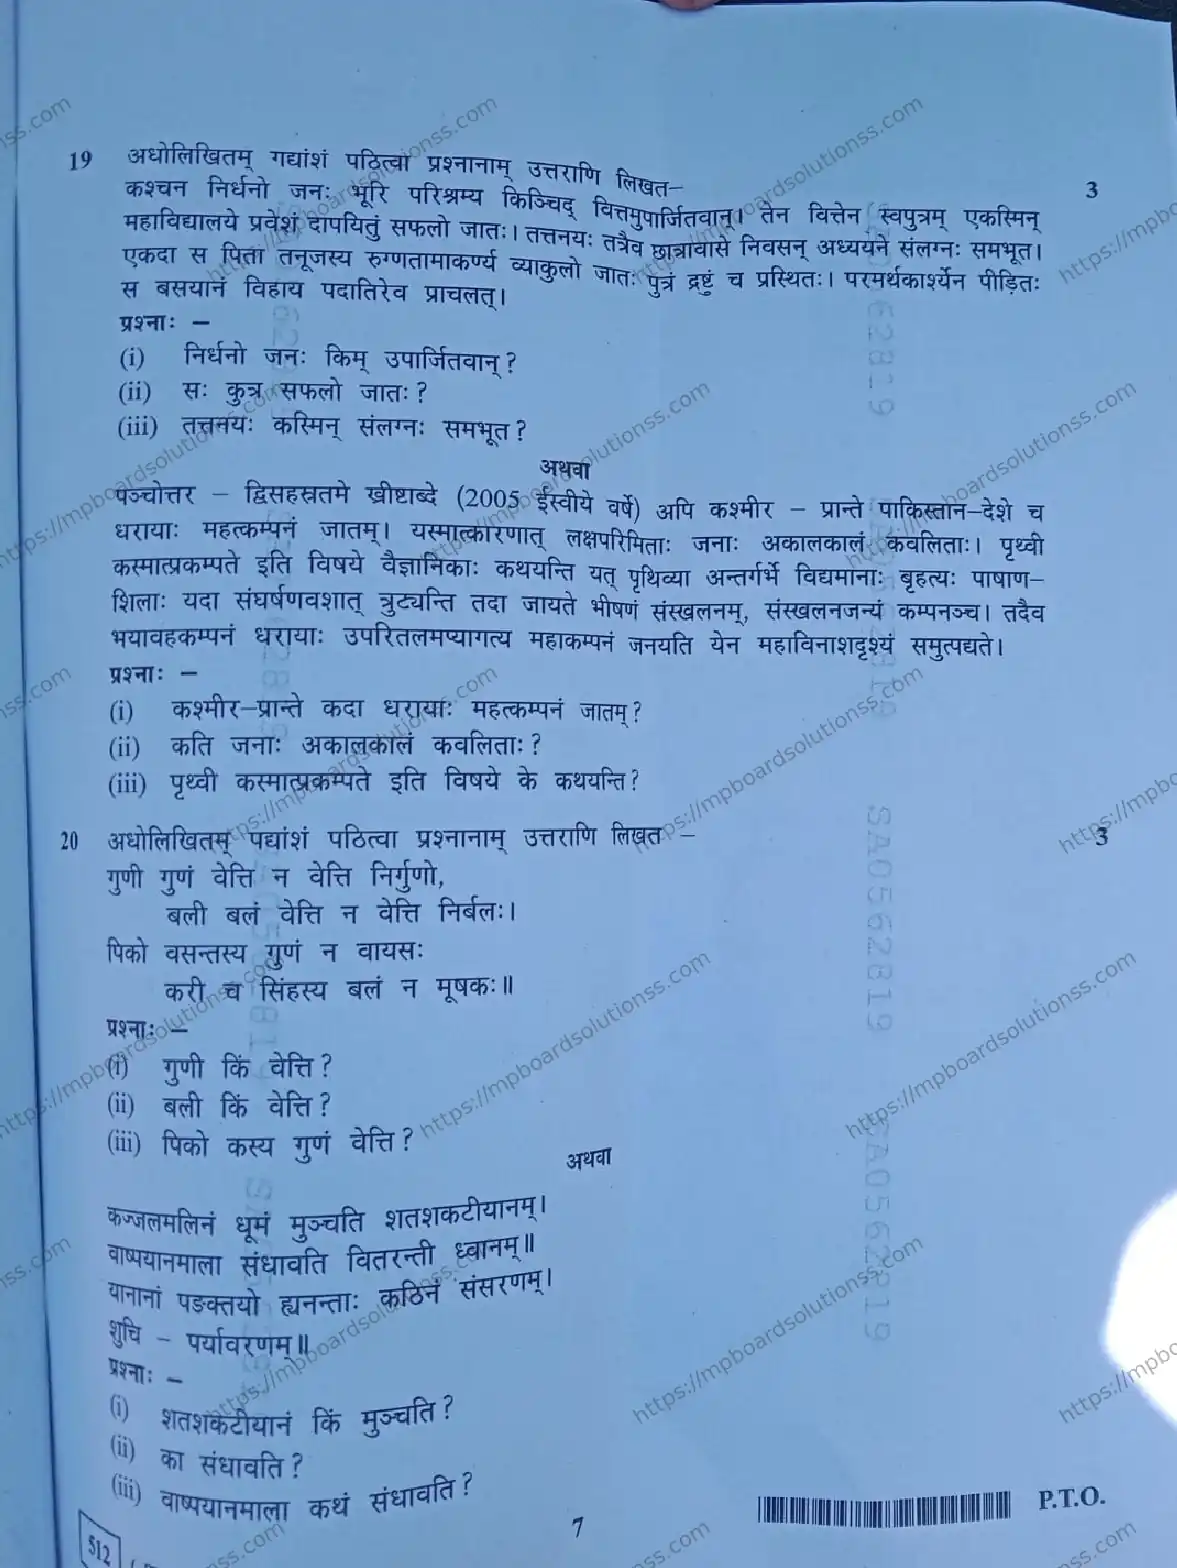 19 अधोलिखितम् गद्यांशं पठित्वा प्रश्नानाम् उत्तराणि लिखत– 3
कश्चन निर्धनो जनः भूरि परिश्रम्य किञ्चिद् वित्तमुपार्जितवान्। तेन वित्तेन स्वपुत्रम् एकस्मिन्
महाविद्यालये प्रवेशं दापयितुं सफलो जातः। तत्तनयः तत्रैव छात्रावासे निवसन् अध्ययने संलग्नः समभूत।
एकदा स पिता तनूजस्य रुग्णतामाकर्ण्य व्याकुलो जातः पुत्रं द्रष्टुं च प्रस्थितः। परमर्थकार्श्येन पीड़ितः
स बसयानं विहाय पदातिरेव प्राचलत्।
प्रश्नाः –
(i) निर्धनो जनः किम् उपार्जितवान्?
(ii) सः कुत्र सफलो जातः?
(iii) तत्तनयः कस्मिन् संलग्नः समभूत?
अथवा
पञ्चोत्तर – द्विसहस्रतमे ख्रीष्टाब्दे (2005 ईस्वीये वर्षे) अपि कश्मीर – प्रान्ते पाकिस्तान–देशे च
धरायाः महत्कम्पनं जातम्। यस्मात्कारणात् लक्षपरिमिताः जनाः अकालकालं कवलिताः। पृथ्वी
कस्मात्प्रकम्पते इति विषये वैज्ञानिकाः कथयन्ति यत् पृथिव्या अन्तर्गर्भे विद्यमानाः बृहत्यः पाषाण–
शिलाः यदा संघर्षणवशात् त्रुट्यन्ति तदा जायते भीषणं संस्खलनम्, संस्खलनजन्यं कम्पनञ्च। तदैव
भयावहकम्पनं धरायाः उपरितलमप्यागत्य महाकम्पनं जनयति येन महाविनाशदृश्यं समुत्पद्यते।
प्रश्नाः –
(i) कश्मीर–प्रान्ते कदा धरायाः महत्कम्पनं जातम्?
(ii) कति जनाः अकालकालं कवलिताः?
(iii) पृथ्वी कस्मात्प्रकम्पते इति विषये के कथयन्ति?
20 अधोलिखितम् पद्यांशं पठित्वा प्रश्नानाम् उत्तराणि लिखत – 3
गुणी गुणं वेत्ति न वेत्ति निर्गुणो,
बली बलं वेत्ति न वेत्ति निर्बलः।
पिको वसन्तस्य गुणं न वायसः
करी च सिंहस्य बलं न मूषकः॥
प्रश्नाः –
(i) गुणी किं वेत्ति?
(ii) बली किं वेत्ति?
(iii) पिको कस्य गुणं वेत्ति?
अथवा
कज्जलमलिनं धूमं मुञ्चति शतशकटीयानम्।
वाष्पयानमाला संधावति वितरन्ती ध्वानम्॥
यानानां पङक्तयो ह्यनन्ताः कठिनं संसरणम्।
शुचि – पर्यावरणम्॥
प्रश्नाः –
(i) शतशकटीयानं किं मुञ्चति?
(ii) का संधावति?
(iii) वाष्पयानमाला कथं संधावति?
7
P.T.O.
512
SA0562819
https://mpboardsolutionss.com